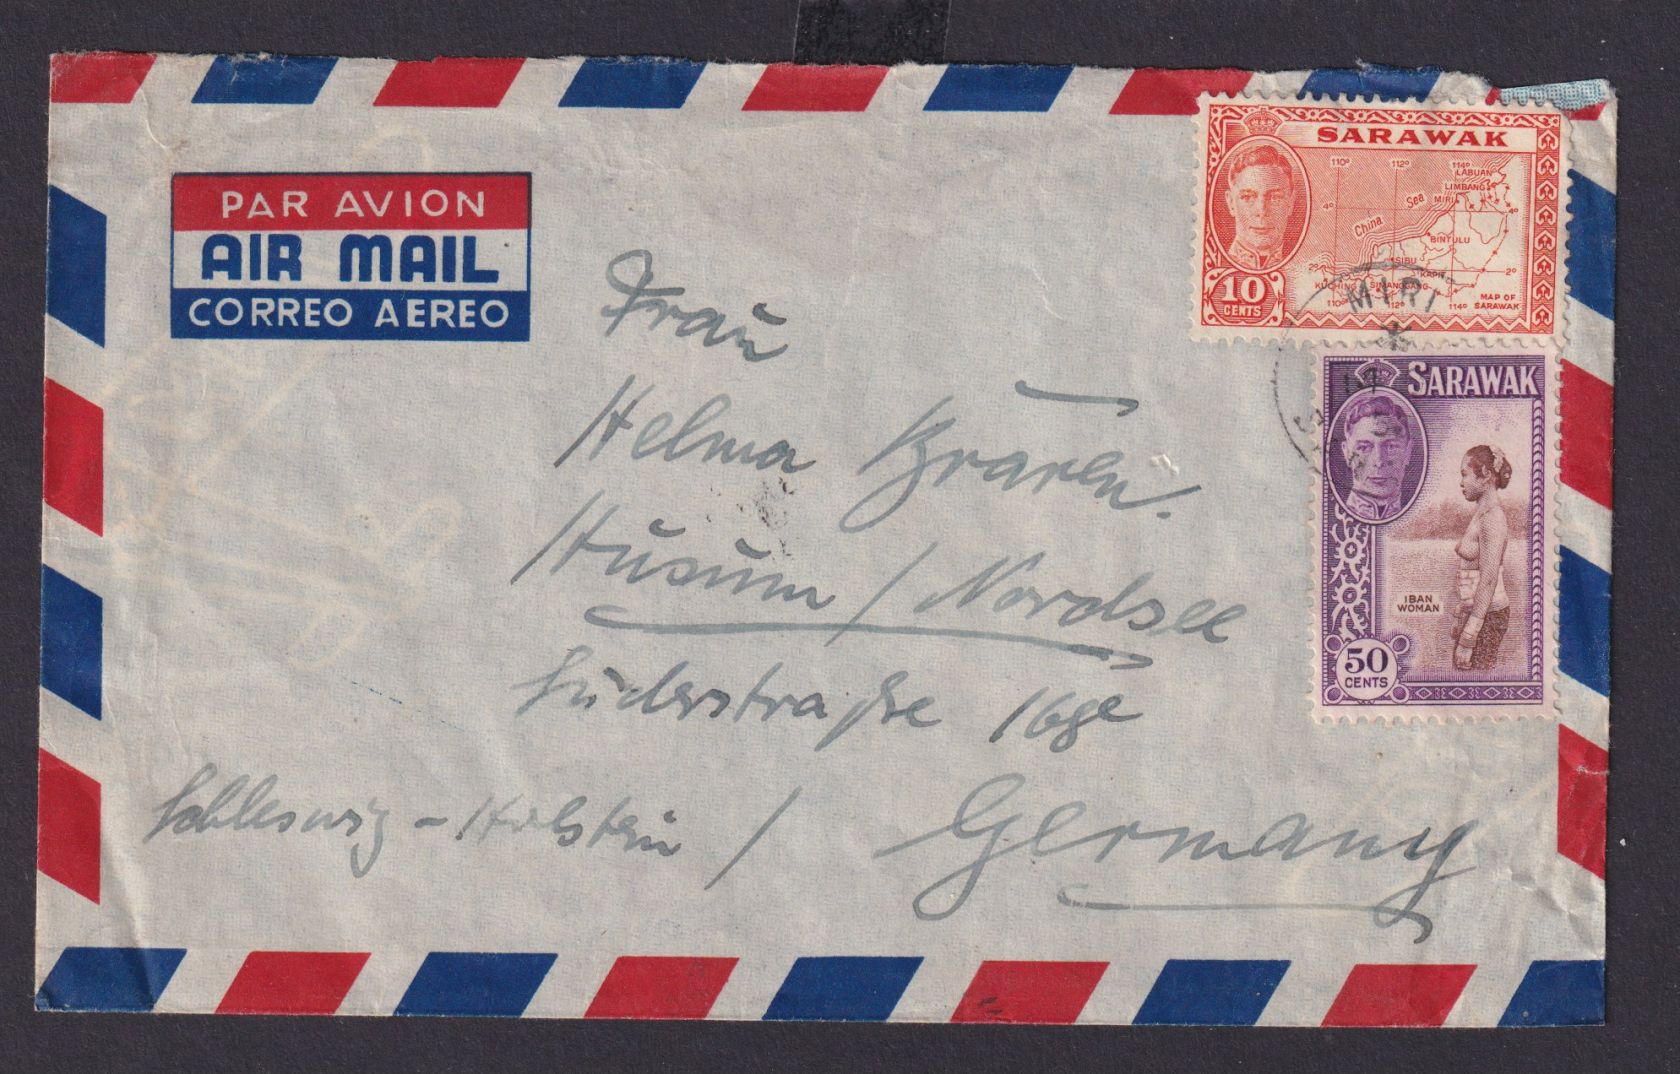 PAR AVION
AIR MAIL
CORREO AEREO
SARAWAK
110° 112° 114°
LABUAN
LIMBANG
MIRI
4° 4°
China Sea
BINTULU
SIBU
KAPIT
2° 2°
KUCHING SIMANGGANG
110° 112° 114°
MAP OF
SARAWAK
10
CENTS
MIRI
SARAWAK
IBAN
WOMAN
50
CENTS
Frau
Helma Brären.
Husum / Nordsee
Süderstraße 168e
Schleswig-Holstein / Germany